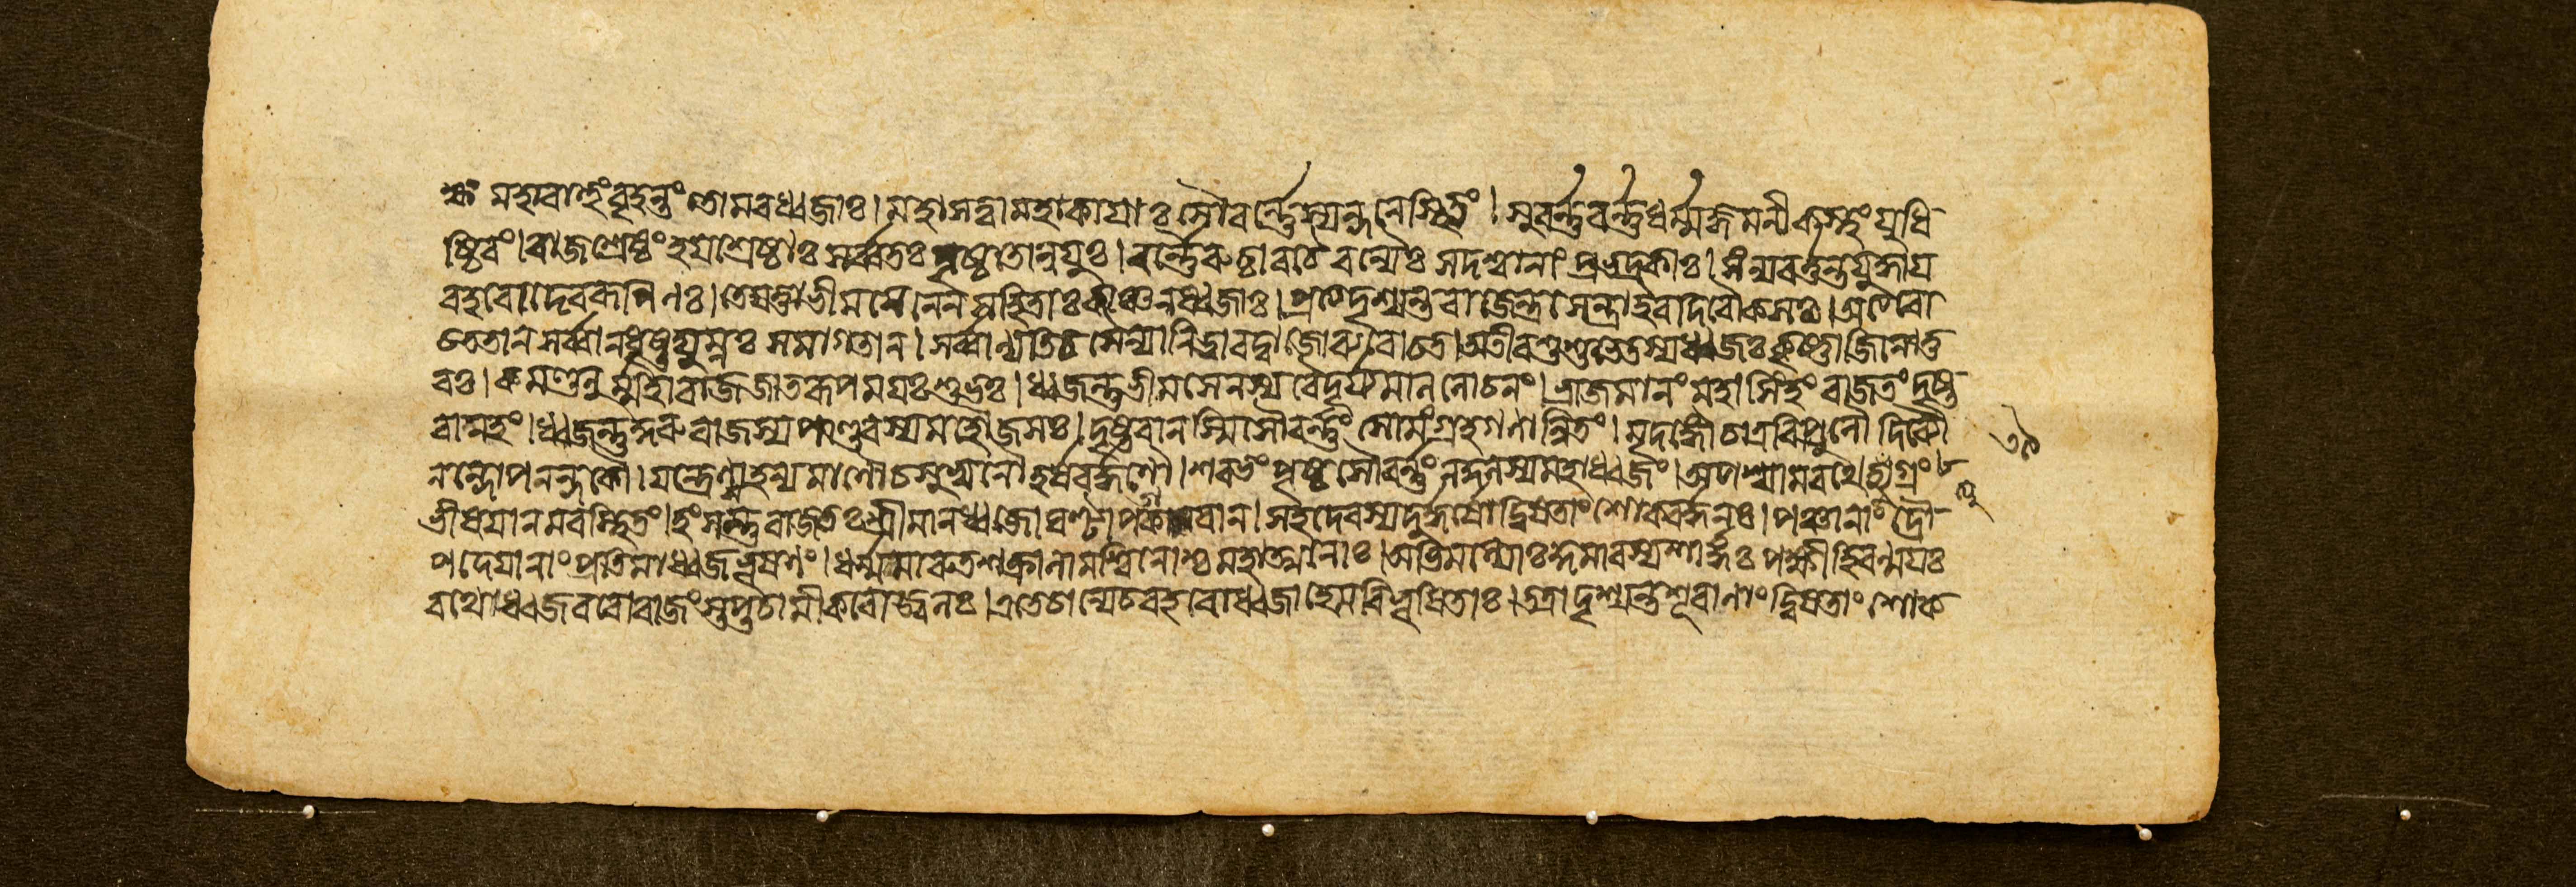 ক্ষং মহাবাহুং বৃহন্তং তামরধ্বজাঃ। মহাসত্বা মহাকায়াঃ সৌবর্ন্নেস্যন্দনেস্থিতং। সুবর্ন্নবর্ন্নধর্ম্মজ্ঞমনীকস্থং যুধি
ষ্ঠিরং। রাজশ্রেষ্ঠং হয়শ্রেষ্ঠাঃ সর্ব্বতঃ পৃষ্ঠতোনুযুঃ। বর্ন্নৈরুচ্চাবচৈরন্যৈঃ সদশ্বানাং প্রভদ্রকাঃ। সংন্যবর্ত্তন্তযুদ্ধায়
বহবোদেবরূপিণঃ। তেযত্তাভীমসেনেনসহিতাঃকাঞ্চনধ্বজাঃ। প্রত্যদৃশ্যন্তরাজেন্দ্রসেন্দ্রাইবদিবৌকসঃ। অত্যরো
চতেতানসর্ব্বানধৃষ্টদ্যুম্নঃ সমাগতান। সর্ব্বাণ্যতিচসৈন্যানিভারদ্বাজোব্যরোচত। অতীবশুশুভেতস্যধ্বজঃকৃষ্ণাজিনোত্ত
রঃ। কমণ্ডলুর্ম্মহারাজজাতরূপময়ঃশুভঃ। ধ্বজন্তুভীমসেনস্যবৈদূর্য্যমানলোচনং। ভ্রাজমানং মহাসিংহং রাজতং দৃষ্ট
বানহং। ধ্বজন্তুকুরুরাজস্যপাণ্ডবস্যমহৌজসঃ। দৃষ্টবানস্মিসৌবর্ন্নং সোমংগ্রহগণান্বিতং। মৃদঙ্গৌচাত্রবিপুলৌ দিব্যৌ
নন্দোপনন্দকৌ। যন্ত্রেণাহন্যমানৌচসুস্বনৌহর্ষবর্দ্ধনৌ। শরভংপৃষ্ঠসৌবর্ন্নং নকুলস্যমহাধ্বজং। অপশ্যামরথেত্যুগ্রং
ভীষয়ানমবস্থিতং। হংসস্তুরাজতঃশ্রীমানধ্বজোঘণ্টাপতাকবান। সহদেবস্যদুর্দ্ধর্ষোদ্বিষতাং শোকবর্দ্ধনঃ। পঞ্চানাং দ্রৌ
পদেয়ানাং প্রতিমাধ্বজভূষণং। ধর্ম্মমারুতশক্রাণামশ্বিনোশ্চমহাত্মনোঃ। অভিমন্যোঃকুমারস্যশার্ঙ্গঃ পক্ষীহিরন্ময়ঃ
রথেধ্বজবরোরাজংস্তপ্তচামীকরোজ্জ্বলঃ। এতেচান্যেচবহবোধ্বজাহেমবিভূষিতাঃ। তত্রাদৃশ্যন্তশূরাণাং দ্বিষতাং শোক